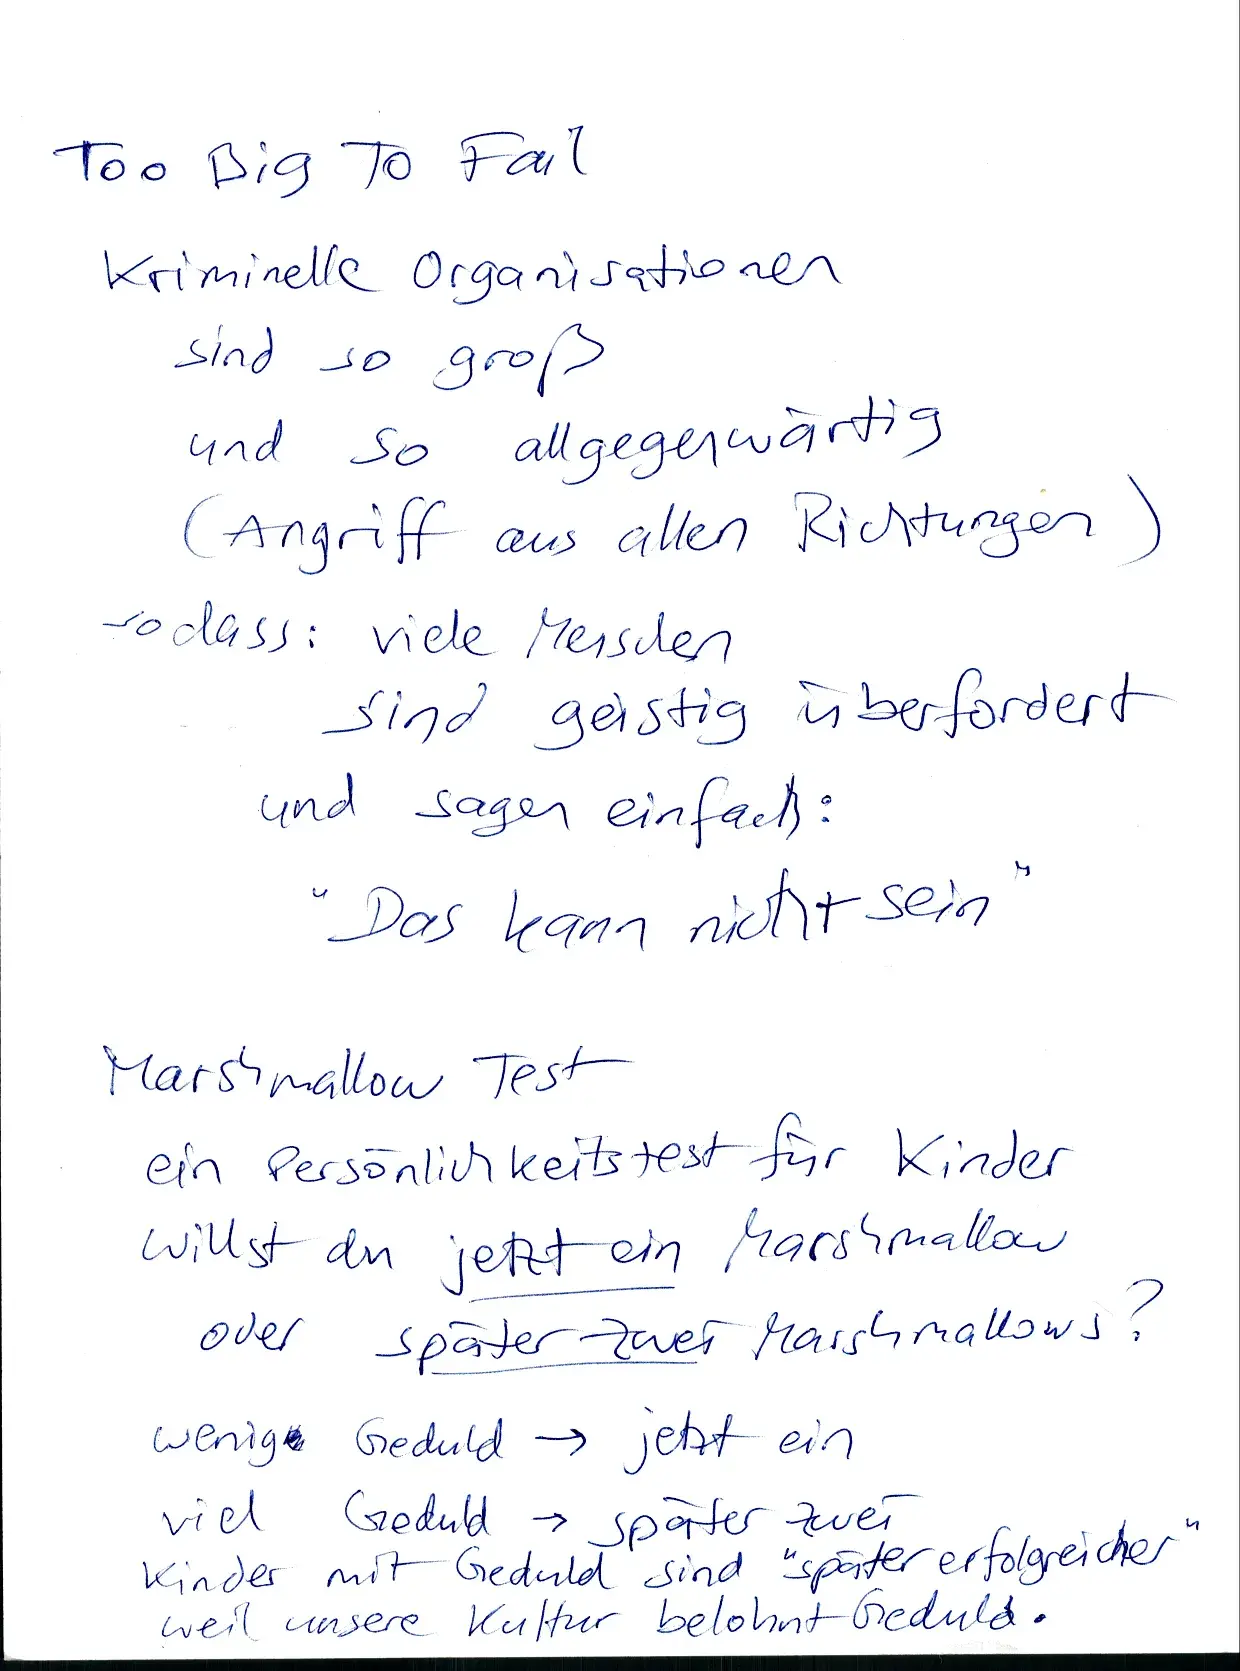 Too Big To Fail
Kriminelle Organisationen
sind so groß
und so allgegenwärtig
(Angriff aus allen Richtungen)
sodass: viele Menschen
sind geistig überfordert
und sagen einfach:
"Das kann nicht sein"
Marshmallow Test
ein Persönlichkeitstest für Kinder
willst du jetzt ein Marshmallow
oder später zwei Marshmallows?
wenig Geduld → jetzt ein
viel Geduld → später zwei
Kinder mit Geduld sind "später erfolgreicher"
weil unsere Kultur belohnt Geduld.